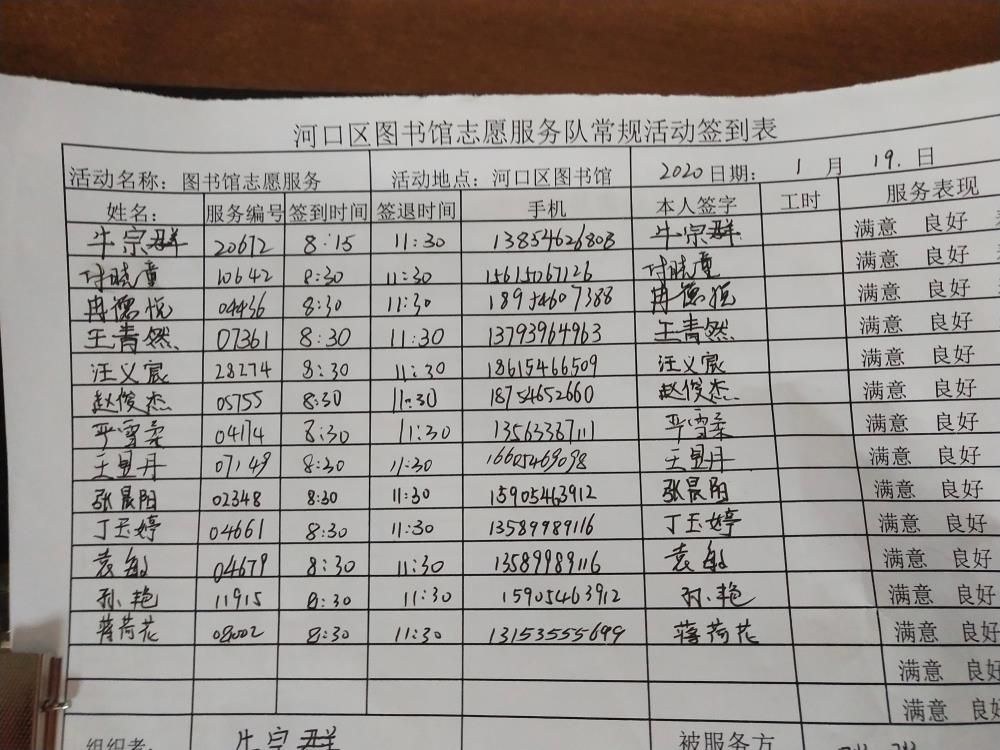 河口区图书馆志愿服务队常规活动签到表
活动名称：图书馆志愿服务 活动地点：河口区图书馆 2020日期： 1 月 19. 日
姓名： 服务编号 签到时间 签退时间 手机 本人签字 工时 服务表现
牛宗群 20672 8:15 11:30 13854626803 牛宗群 满意 良好
付晓童 10642 8:30 11:30 15615067126 付晓童 满意 良好
冉德悦 04436 8:30 11:30 18954607388 冉德悦 满意 良好
王青然 07361 8:30 11:30 13793964963 王青然 满意 良好
汪义宸 28274 8:30 11:30 18615466509 汪义宸 满意 良好
赵俊杰 05755 8:30 11:30 18754652660 赵俊杰 满意 良好
严雪柔 04174 8:30 11:30 13563387111 严雪柔 满意 良好
王昱丹 07149 8:30 11:30 16605469098 王昱丹 满意 良好
张晨阳 02348 8:30 11:30 15905463912 张晨阳 满意 良好
丁玉婷 04661 8:30 11:30 13589989116 丁玉婷 满意 良好
袁敏 04679 8:30 11:30 13589989116 袁敏 满意 良好
孙艳 11915 8:30 11:30 15905463912 孙艳 满意 良好
蒋荷花 08002 8:30 11:30 13153555699 蒋荷花 满意 良好
满意 良好
满意 良好
组织者： 牛宗群 被服务方